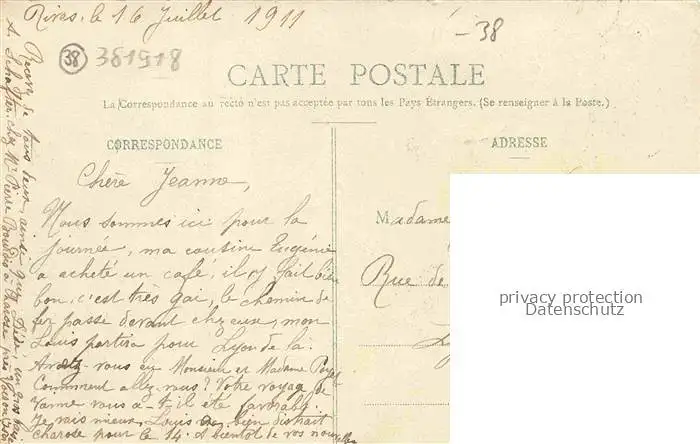 Rives, le 16 Juillet 1911
-38
38 381918
CARTE POSTALE
La Correspondance au recto n'est pas acceptée par tous les Pays Etrangers. (Se renseigner à la Poste.)
CORRESPONDANCE
ADRESSE
Chère Jeanne,
Nous sommes ici pour la
journée, ma cousine Eugénie
a acheté un café, il y fait bien
bon, c'est très gai, le chemin de
fer passe devant chez eux, mon
Louis partira pour Lyon de là.
Avez vous eu Monsieur et Madame
Comment allez-vous? Votre voyage de
vous a-t-il été favorable
je vais mieux, Louis bien
pour le 14. A bientôt de vos nouvelles
Madame
Rue de
privacy protection
Datenschutz
de tous deux,
chez Mr Pierre à près